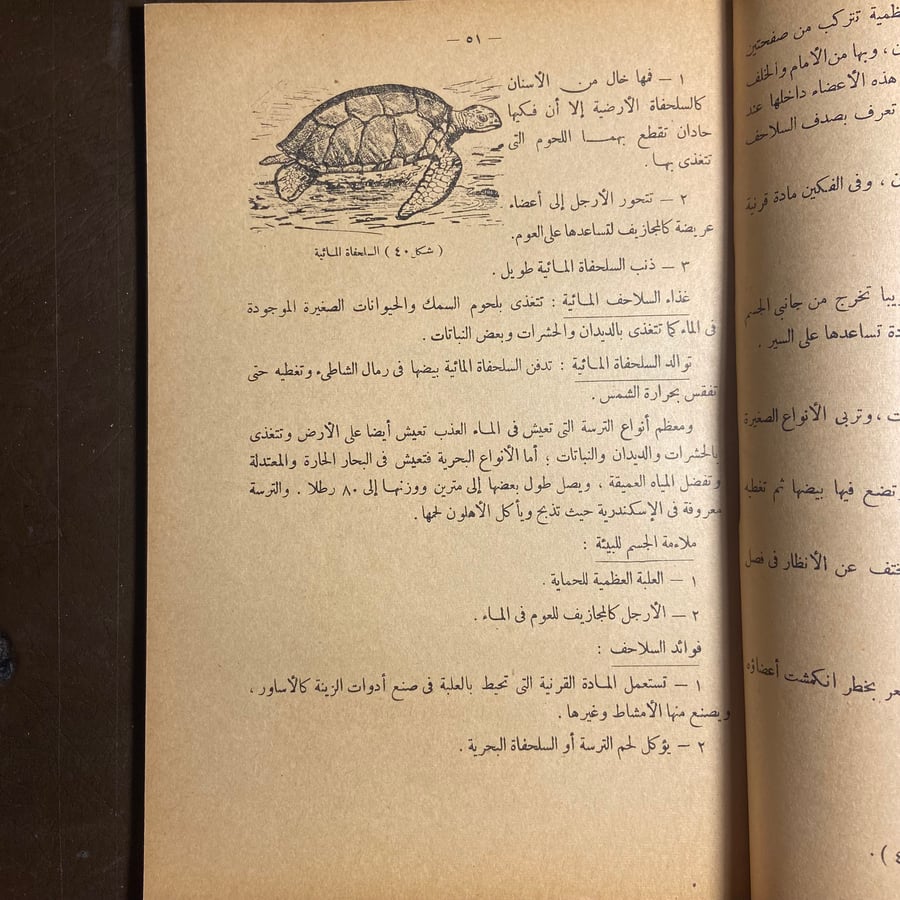 — ٥١ —
١ — فمها خال من الأسنان
كالسلحفاة الأرضية إلا أن فكيها
حادان تقطع بهما اللحوم التى
تتغذى بها .
٢ — تتحور الأرجل إلى أعضاء
عريضة كالمجازيف لتساعدها على العوم.
( شكل ٤٠ ) السلحفاة المائية
٣ — ذنب السلحفاة المائية طويل .
غذاء السلاحف المائية : تتغذى بلحوم السمك والحيوانات الصغيرة الموجودة
فى الماء كما تتغذى بالديدان والحشرات وبعض النباتات .
توالد السلحفاة المائية : تدفن السلحفاة المائية بيضها فى رمال الشاطىء وتغطيه حتى
تفقس بحرارة الشمس .
ومعظم أنواع الترسة التى تعيش فى الماء العذب تعيش أيضا على الأرض وتتغذى
بالحشرات والديدان والنباتات ؛ أما الأنواع البحرية فتعيش فى البحار الحارة والمعتدلة
وتفضل المياه العميقة ، ويصل طول بعضها إلى مترين ووزنها إلى ٨٠ رطلا . والترسة
معروفة فى الإسكندرية حيث تذبح ويأكل الأهلون لحمها .
ملاءمة الجسم للبيئة :
١ — العلبة العظمية للحماية .
٢ — الأرجل كالمجازيف للعوم فى الماء .
فوائد السلاحف :
١ — تستعمل المادة القرنية التى تحيط بالعلبة فى صنع أدوات الزينة كالأساور ،
ويصنع منها الأمشاط وغيرها .
٢ — يؤكل لحم الترسة أو السلحفاة البحرية .
تتركب من صفحتين
، وبها من الأمام والخلف
هذه الأعضاء داخلها عند
تعرف بصدف السلاحف
، وفى الفكين مادة قرنية
تخرج من جانبى الجسم
تساعدها على السير .
، وتربى الأنواع الصغيرة
وتضع فيها بيضها ثم تغطيه
عن الأنظار فى فصل
بخطر انكمشت أعضاؤه